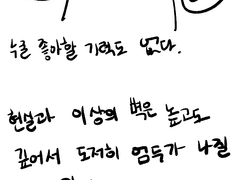 누굴 좋아할 기력도 없다.
현실과 이상의 벽은 높고도
깊어서 도저히 엄두가 나질